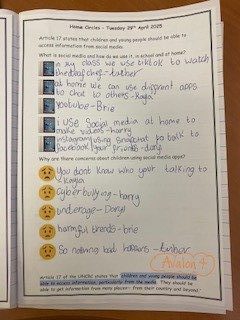 Home Circles – Tuesday 29th April 2025
Article 17 states that children and young people should be able to
access information from social media.
What is social media and how do we use it, in school and at home?
in my class we use tiktok to watch
the deaf chef-
at home we can use different apps
to chat to others - Kayla
youtube - Brie
i use Social media at home to
make videos - harry
instagram using Snapchat to talk to
facebook your friends - daryl
Why are there concerns about children using social media apps?
You dont know who your talking to
- Kayla
Cyberbullying - harry
underage - Daryl
harmful trends - brie
So nothing bad happens -
Avalon 4
Article 17 of the UNCRC states that children and young people should be
able to access information, particularly from the media. They should be
able to get information from many places - from their country and beyond.